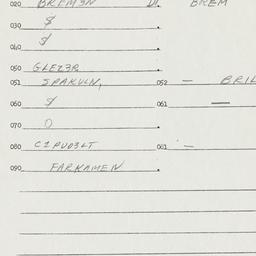 020 BREM3N DI BREM
030 $
040 $
050 GLEZ3R
051 SPAKULN, 052 — BRIL
060 $ 061 —
070 0
080 C1PUD3LT 081 —
090 FARKAMEN